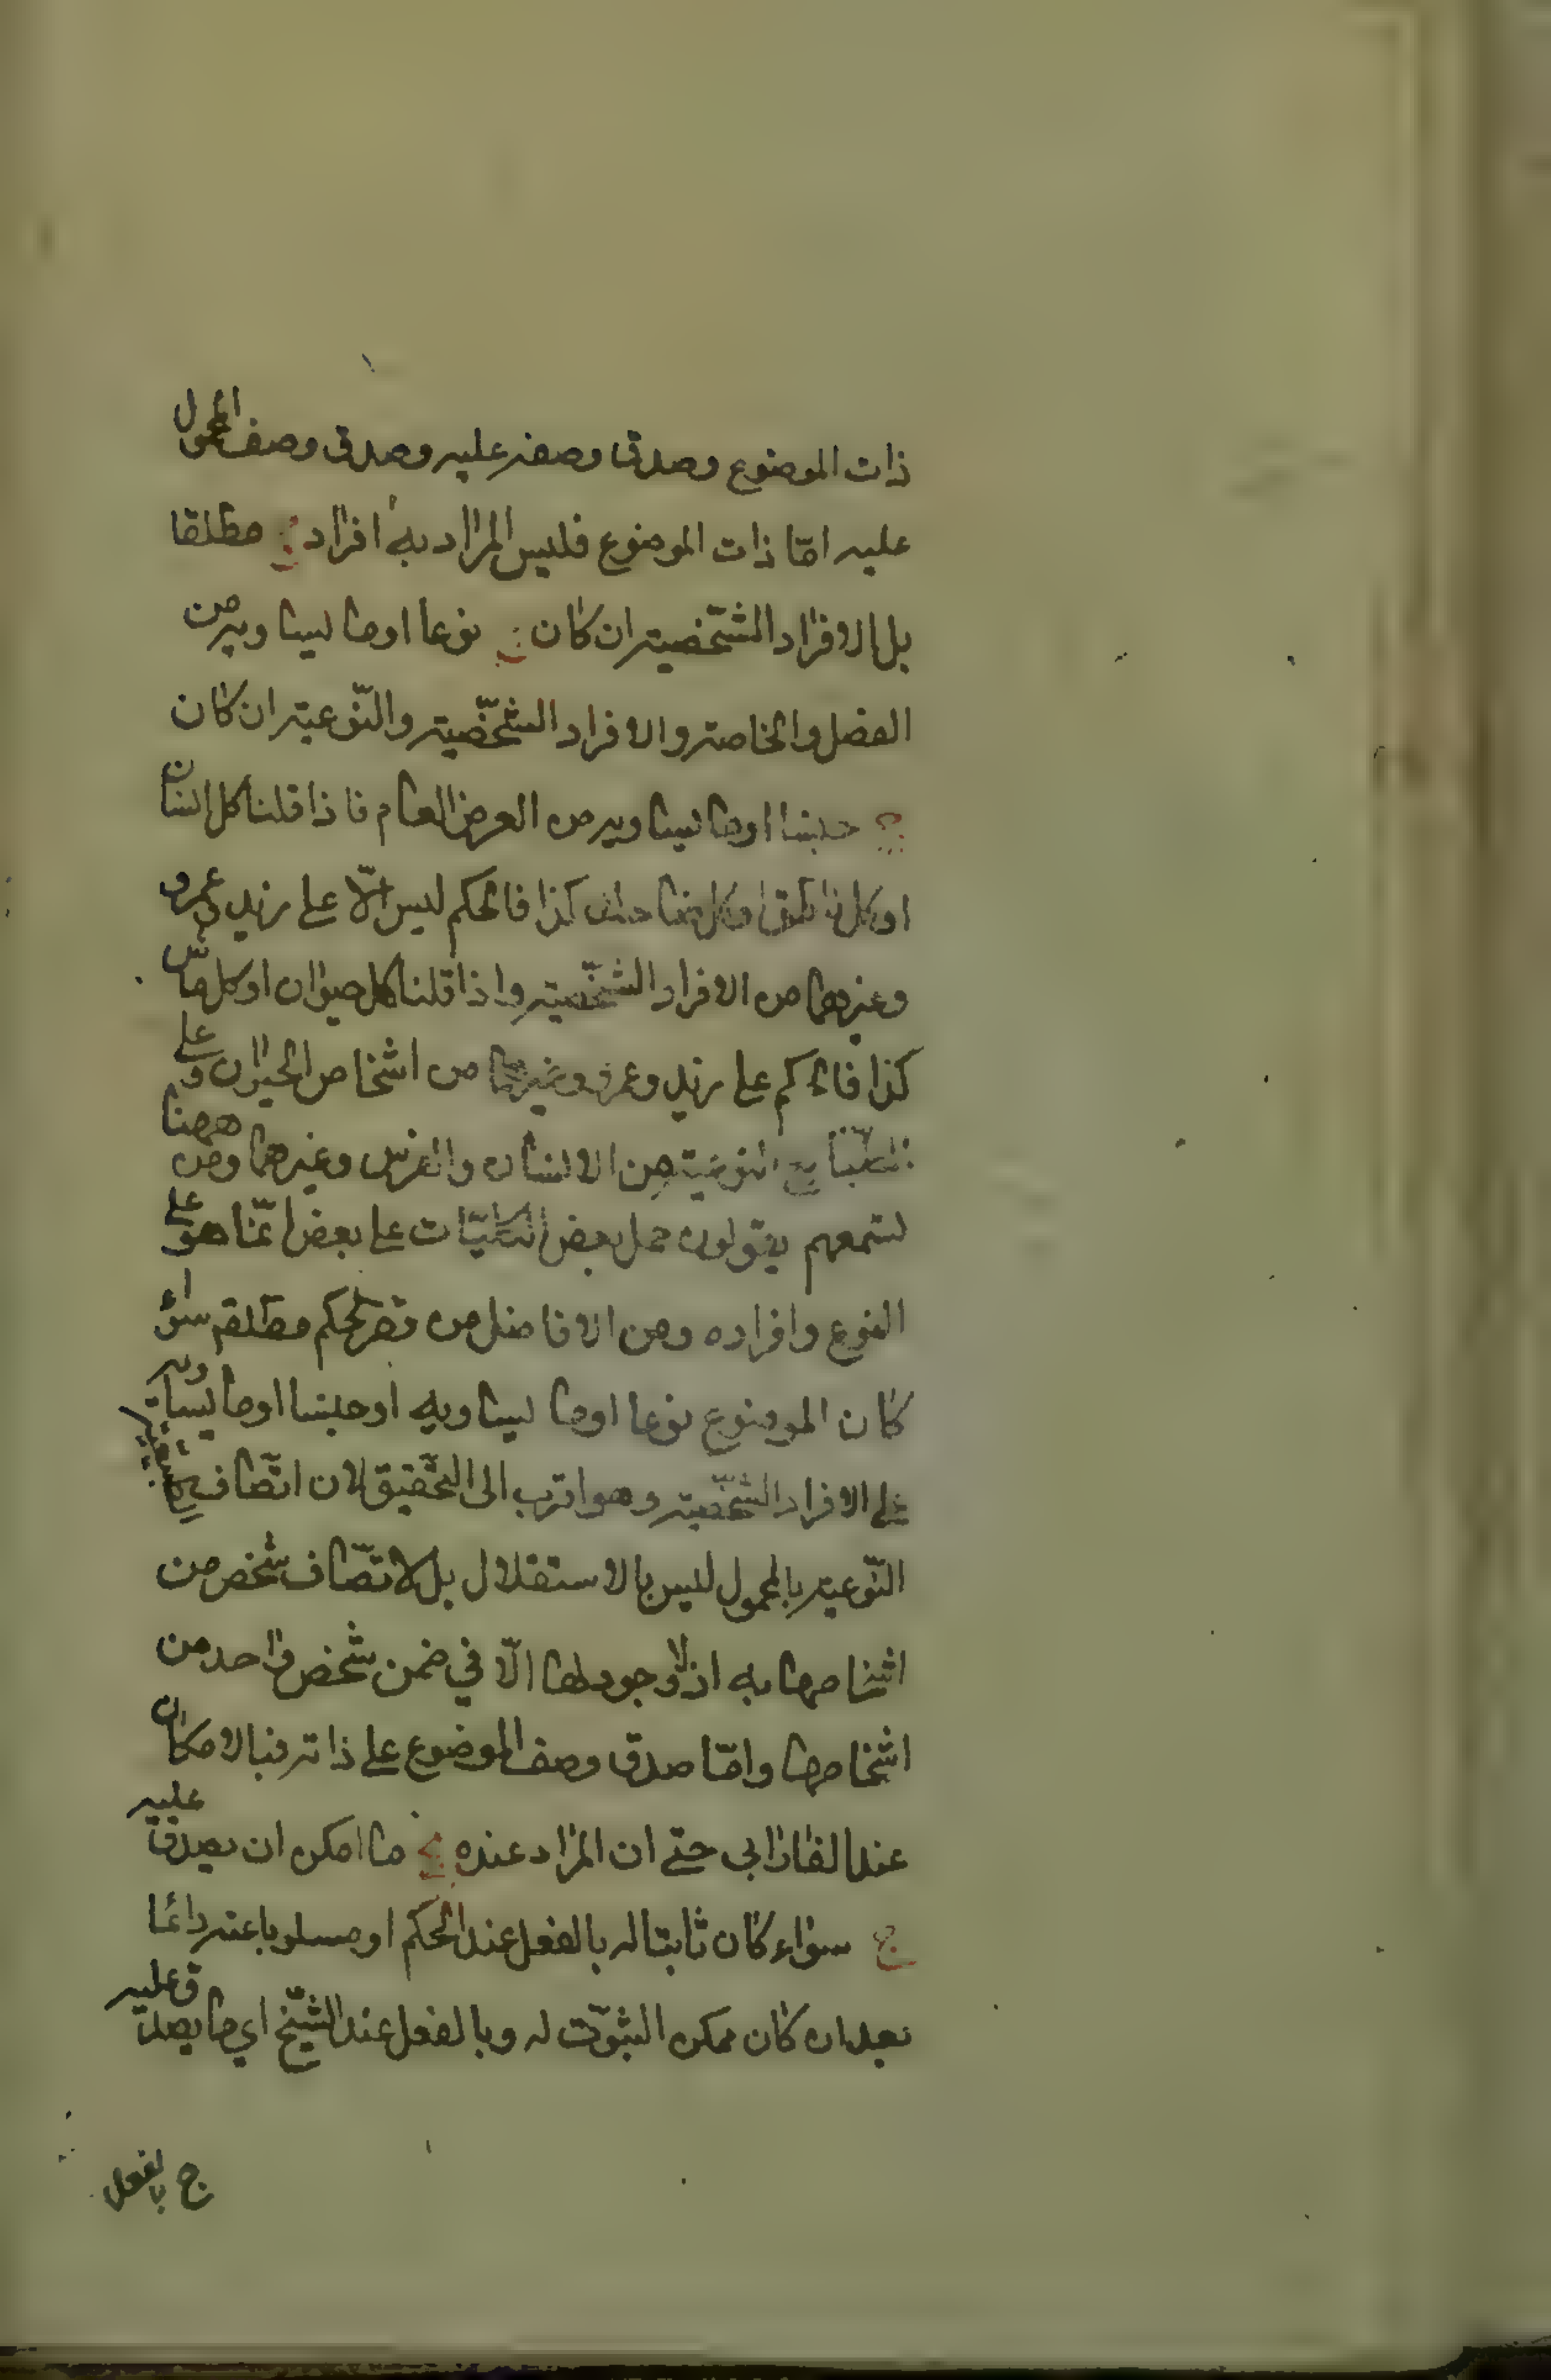 ذات الموضوع وصدق وصفه عليه وصدق وصف المحمول
عليه امّا ذات الموضوع فليس المراد به افراد ج مطلقا
بل الافراد الشّخصية ان كان ج نوعا او ما يساويه من
الفصل والخاصة والافراد الشّخصّية والنّوعية ان كان
ج جنسا او ما يساويه من العرض العام فاذا قلنا كل انسان
او كل ناطق او كل ضاحك كذا فالحكم ليس الّا على زيد وعمرو
وغيرهما من الافراد الشّخصّية واذا قلنا كل حيوان او كل ماشّ
كذا فالحكم على زيد وعمرو وغيرهما من اشخاص الحيوان وعلى
الطّبايع النوعية من الانسان والفرس وغيرهما ومن ههنا
تسمعهم يقولون حمل بعض الكليّات على بعض انّما هو على
النوع وافراده ومن الافاضل من قصر الحكم مطلقا سواء
كان الموضوع نوعا او ما يساويه او جنسا او ما يساويه
على الافراد الشّخصّية وهو اقرب الى التّحقيق لان اتّصاف الطبيعة
النّوعية بالمحمول ليس بالاستقلال بل لاتصّاف شخص من
اشخاصها به اذ لا وجود لها الّا في ضمن شخص واحد من
اشخاصها وامّا صدق وصف الموضوع على ذاته فبالامكان
عند الفارابي حتى ان المراد عنده ج ما امكن ان يصدق عليه
ج سواء كان ثابتا له بالفعل عند الحكم او مسلوبا عنه دائما
بعد ان كان ممكن الثبوّت له وبالفعل عند الشّيخ اي ما يصدق عليه
ج بالفعل